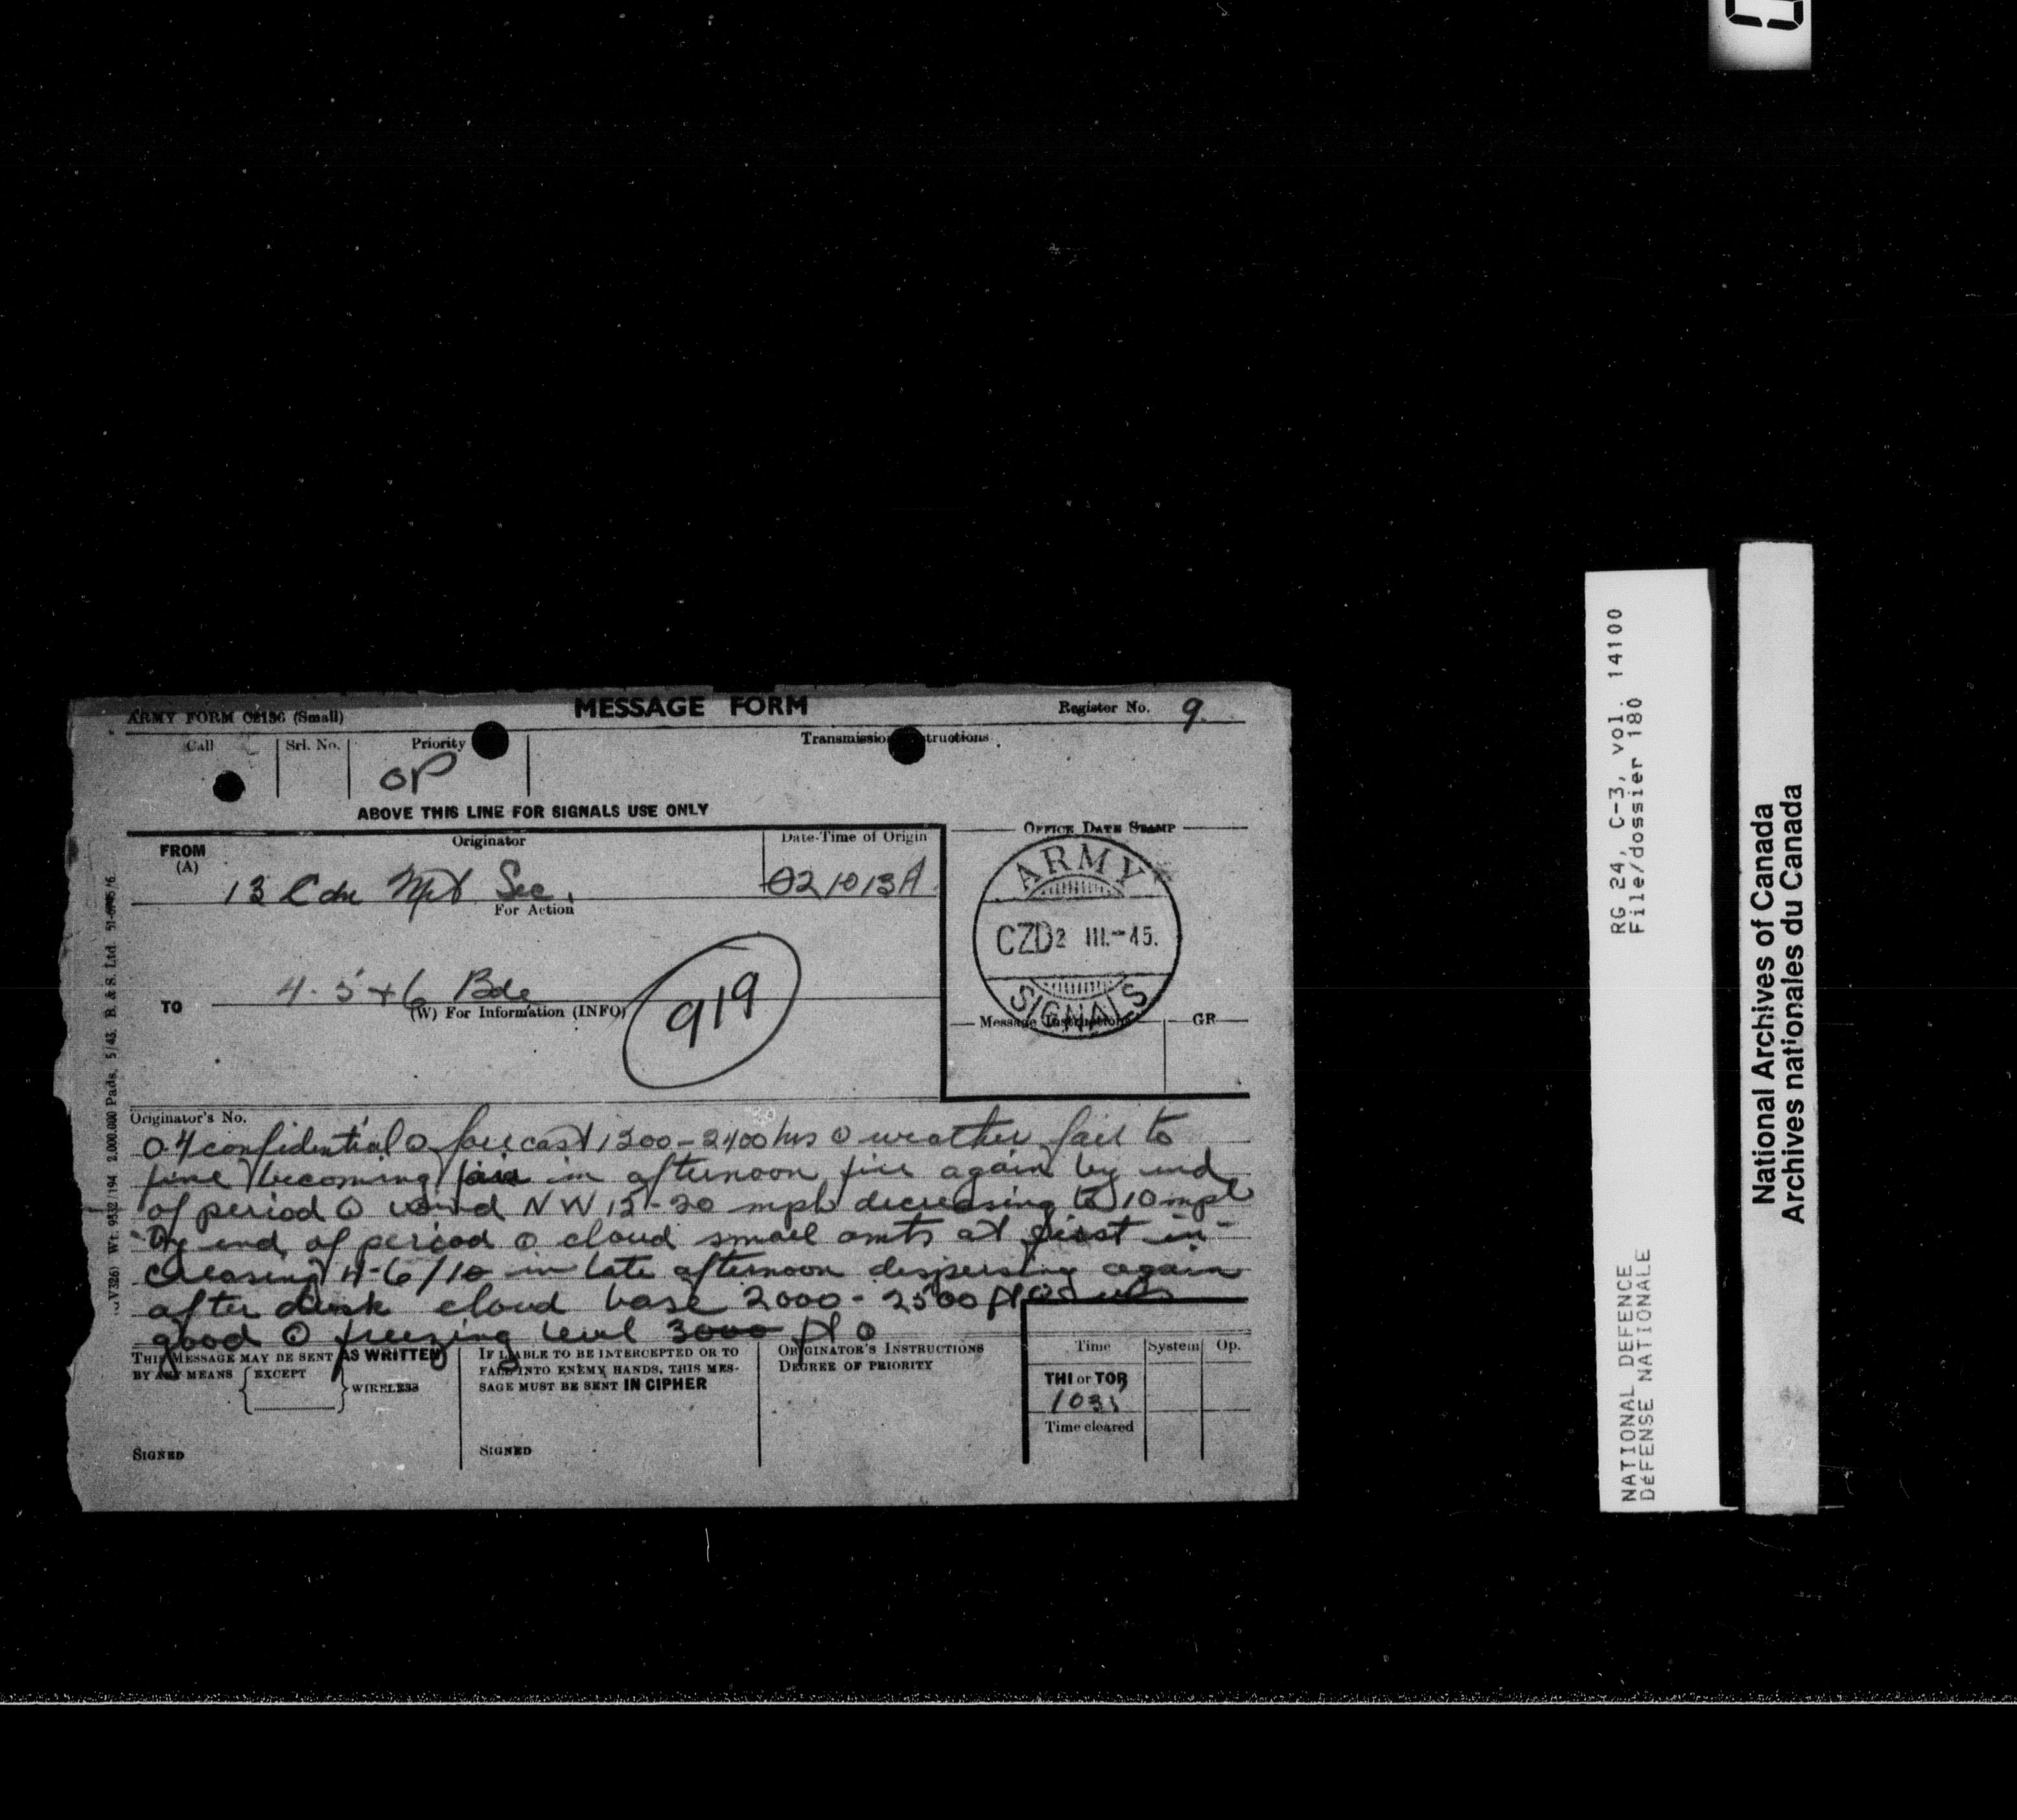 MESSAGE FORM
ARMY FORM C2136 (Small)
Register No. 9.
Call
Srl. No.
Priority
OP
Transmission Instructions
ABOVE THIS LINE FOR SIGNALS USE ONLY
FROM
(A)
Originator
13 Cdn Met Sec.
Date-Time of Origin
021013A
OFFICE DATE STAMP
ARMY
CZD 2 III.-45.
SIGNALS
For Action
TO
4. 5 + 6 Bde
(W) For Information (INFO)
919
Message Instructions
GR
Originator's No.
04 confidential ⊙ forecast 1200-2400 hrs ⊙ weather fair to
fine becoming fair in afternoon fine again by end
of period ⊙ wind NW 15-20 mph decreasing to 10 mph
by end of period ⊙ cloud small amts at first in-
creasing 4-6/10 in late afternoon dispersing again
after dusk cloud base 2000-2500 ft ⊙
good ⊙ freezing level 3000 ft ⊙
THIS MESSAGE MAY BE SENT AS WRITTEN
BY ANY MEANS
EXCEPT
WIRELESS
SIGNED
IF LIABLE TO BE INTERCEPTED OR TO
FALL INTO ENEMY HANDS, THIS MES-
SAGE MUST BE SENT IN CIPHER
SIGNED
ORIGINATOR'S INSTRUCTIONS
DEGREE OF PRIORITY
Time
System
Op.
THI or TOR
Time cleared
2,000,000 Pads. 5/43. B. & S. Ltd.
RG 24, C-3, vol. 14100
File/dossier 180
NATIONAL DEFENCE
DéFENSE NATIONALE
National Archives of Canada
Archives nationales du Canada